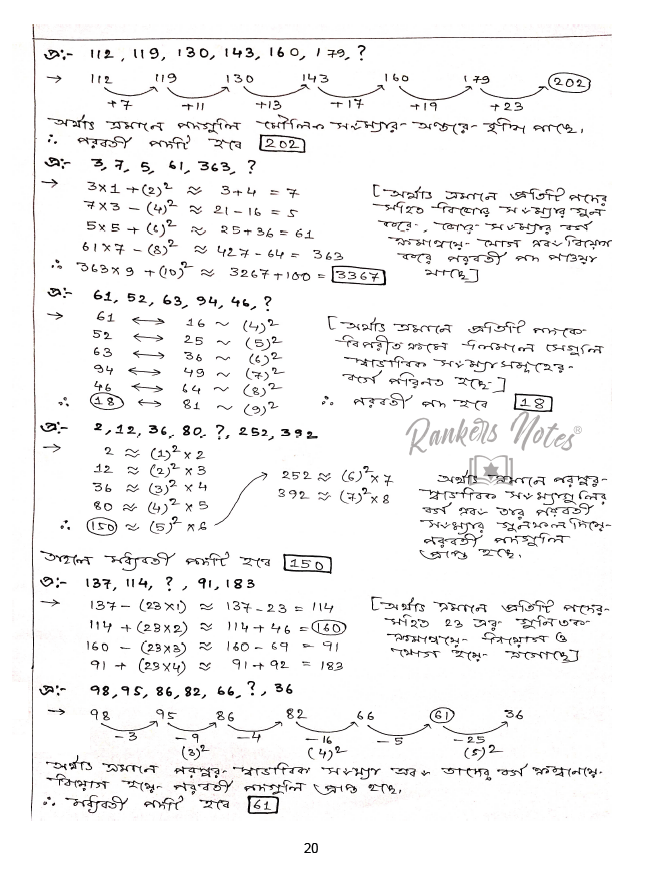 প্র:- 112, 119, 130, 143, 160, 179, ?
→ 112 119 130 143 160 179 202
+7 +11 +13 +17 +19 +23
অর্থাৎ এখানে পদগুলি মৌলিক সংখ্যার অন্তরে বৃদ্ধি পাচ্ছে,
∴ পরবর্তী পদটি হবে 202
প্র:- 3, 7, 5, 61, 363, ?
→ 3×1 + (2)² ≈ 3+4 = 7
7×3 - (4)² ≈ 21-16 = 5
5×5 + (6)² ≈ 25+36 = 61
61×7 - (8)² ≈ 427-64 = 363
∴ 363×9 + (10)² ≈ 3267+100 = 3367
[অর্থাৎ এখানে প্রতিটি পদের
সহিত বিজোড় সংখ্যার গুন
করে, জোড় সংখ্যার বর্গ
ক্রমান্বয়ে যোগ এবং বিয়োগ
করে পরবর্তী পদ পাওয়া
যাচ্ছে]
প্র:- 61, 52, 63, 94, 46, ?
→ 61 ↔ 16 ~ (4)²
52 ↔ 25 ~ (5)²
63 ↔ 36 ~ (6)²
94 ↔ 49 ~ (7)²
46 ↔ 64 ~ (8)²
∴ 18 ↔ 81 ~ (9)²
[অর্থাৎ এখানে প্রতিটি পদকে
বিপরীত ক্রমে লিখলে সেগুলি
স্বাভাবিক সংখ্যা সমূহের
বর্গে পরিনত হচ্ছে]
∴ পরবর্তী পদ হবে 18
প্র:- 2, 12, 36, 80, ?, 252, 392
Rankers Notes®
→ 2 ≈ (1)²×2
12 ≈ (2)²×3
36 ≈ (3)²×4
80 ≈ (4)²×5
∴ 150 ≈ (5)²×6
252 ≈ (6)²×7
392 ≈ (7)²×8
অর্থাৎ এখানে পরস্পর
স্বাভাবিক সংখ্যাগুলির
বর্গ এবং তার পরবর্তী
সংখ্যার গুনফল দিয়ে
পরবর্তী পদগুলি
প্রাপ্ত হচ্ছে,
তাহলে মধ্যবর্তী পদটি হবে 150
প্র:- 137, 114, ?, 91, 183
→ 137 - (23×1) ≈ 137-23 = 114
114 + (23×2) ≈ 114+46 = 160
160 - (23×3) ≈ 160-69 = 91
91 + (23×4) ≈ 91+92 = 183
[অর্থাৎ এখানে প্রতিটি পদের
সহিত 23 এর গুনিতক
ক্রমান্বয়ে বিয়োগ ও
যোগ হয়ে এগোচ্ছে]
প্র:- 98, 95, 86, 82, 66, ?, 36
→ 98 95 86 82 66 61 36
-3 -9 -4 -16 -5 -25
(3)² (4)² (5)²
অর্থাৎ এখানে পরস্পর স্বাভাবিক সংখ্যা এবং তাদের বর্গ
বিয়োগ হয়ে পরবর্তী পদগুলি প্রাপ্ত হচ্ছে,
∴ মধ্যবর্তী পদটি হবে 61
20